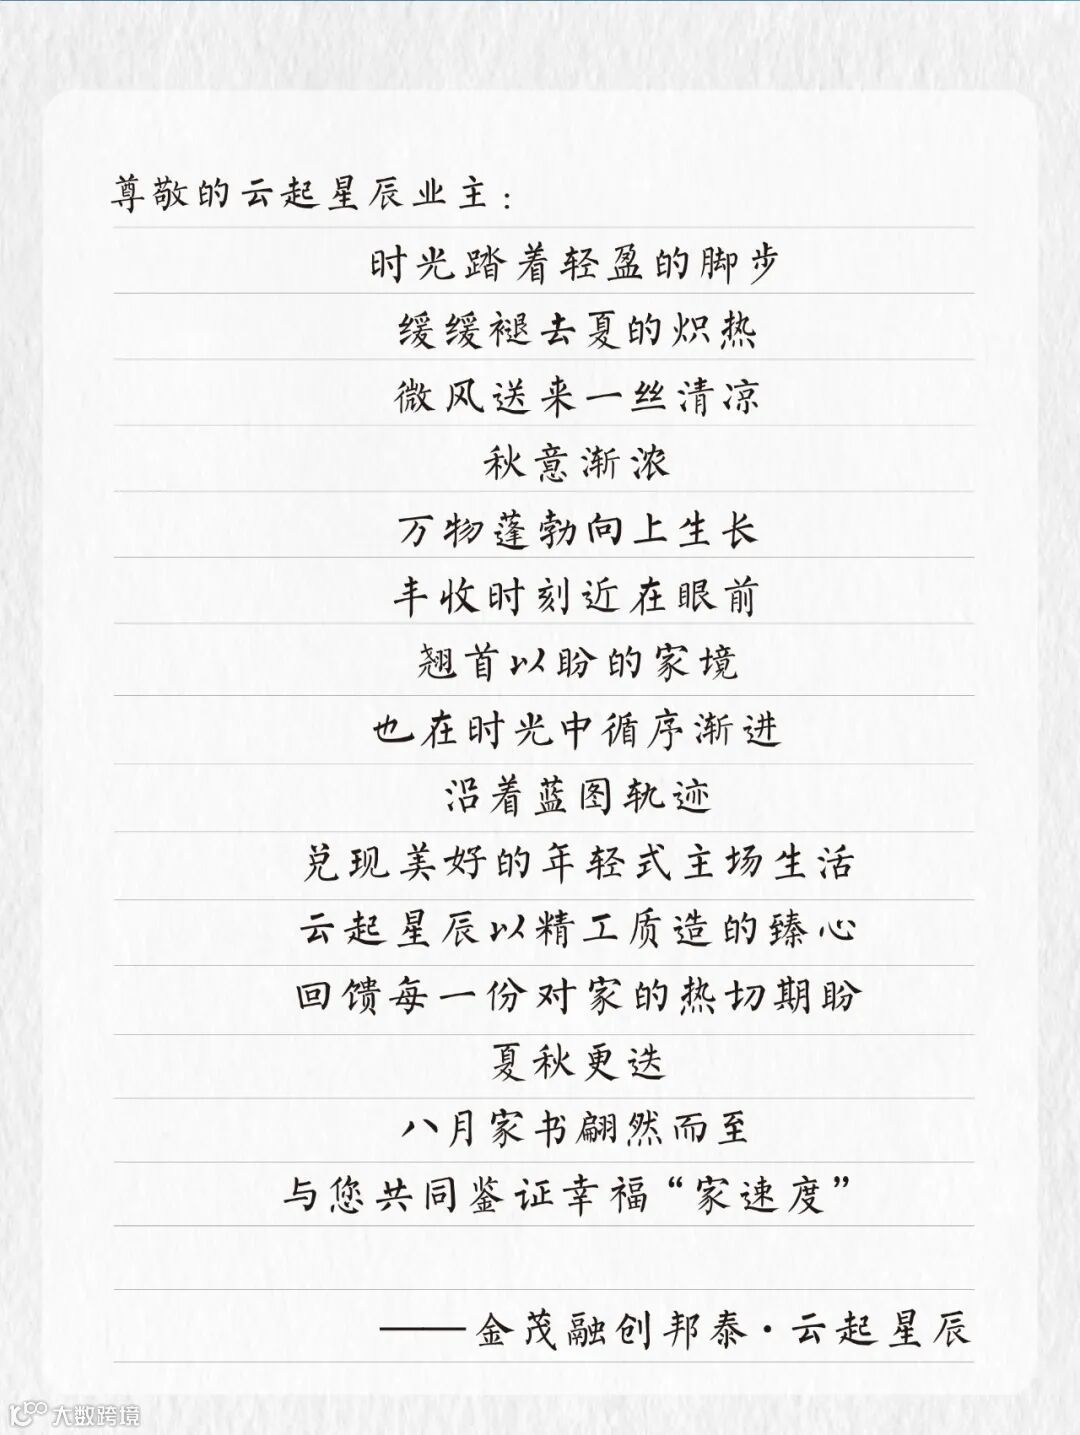 尊敬的云起星辰业主：
时光踏着轻盈的脚步
缓缓褪去夏的炽热
微风送来一丝清凉
秋意渐浓
万物蓬勃向上生长
丰收时刻近在眼前
翘首以盼的家境
也在时光中循序渐进
沿着蓝图轨迹
兑现美好的年轻式主场生活
云起星辰以精工质造的臻心
回馈每一份对家的热切期盼
夏秋更迭
八月家书翩然而至
与您共同鉴证幸福“家速度”
——金茂融创邦泰·云起星辰
大数跨境